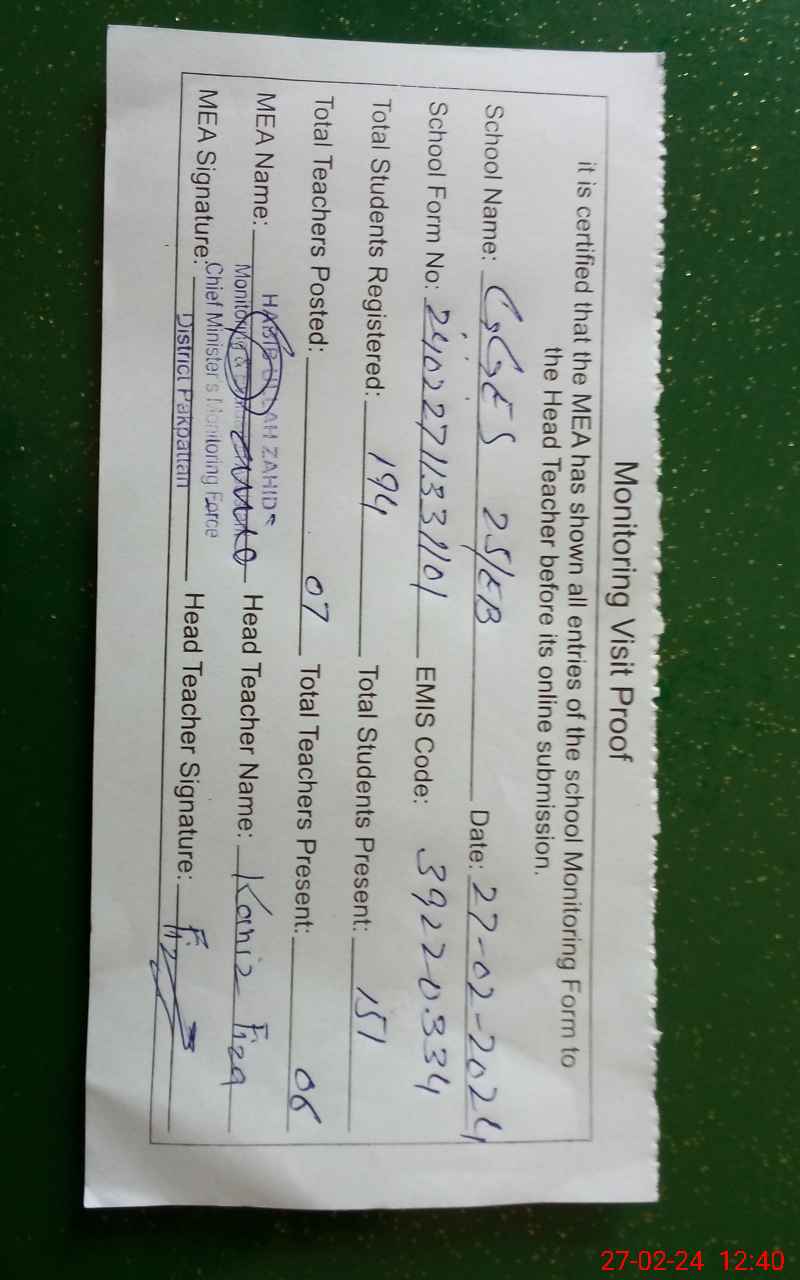 Monitoring Visit Proof
it is certified that the MEA has shown all entries of the school Monitoring Form to
the Head Teacher before its online submission.
School Name: GGES 25/EB Date: 27-02-2024
School Form No: 24022711331101 EMIS Code: 39220334
Total Students Registered: 194 Total Students Present: 151
Total Teachers Posted: 07 Total Teachers Present: 06
MEA Name: HABIB ULLAH ZAHID Head Teacher Name: Kaniz Fiza
Monitoring &
Chief Minister's Monitoring Force
MEA Signature: District Pakpattan Head Teacher Signature: Fiza
27-02-24 12:40